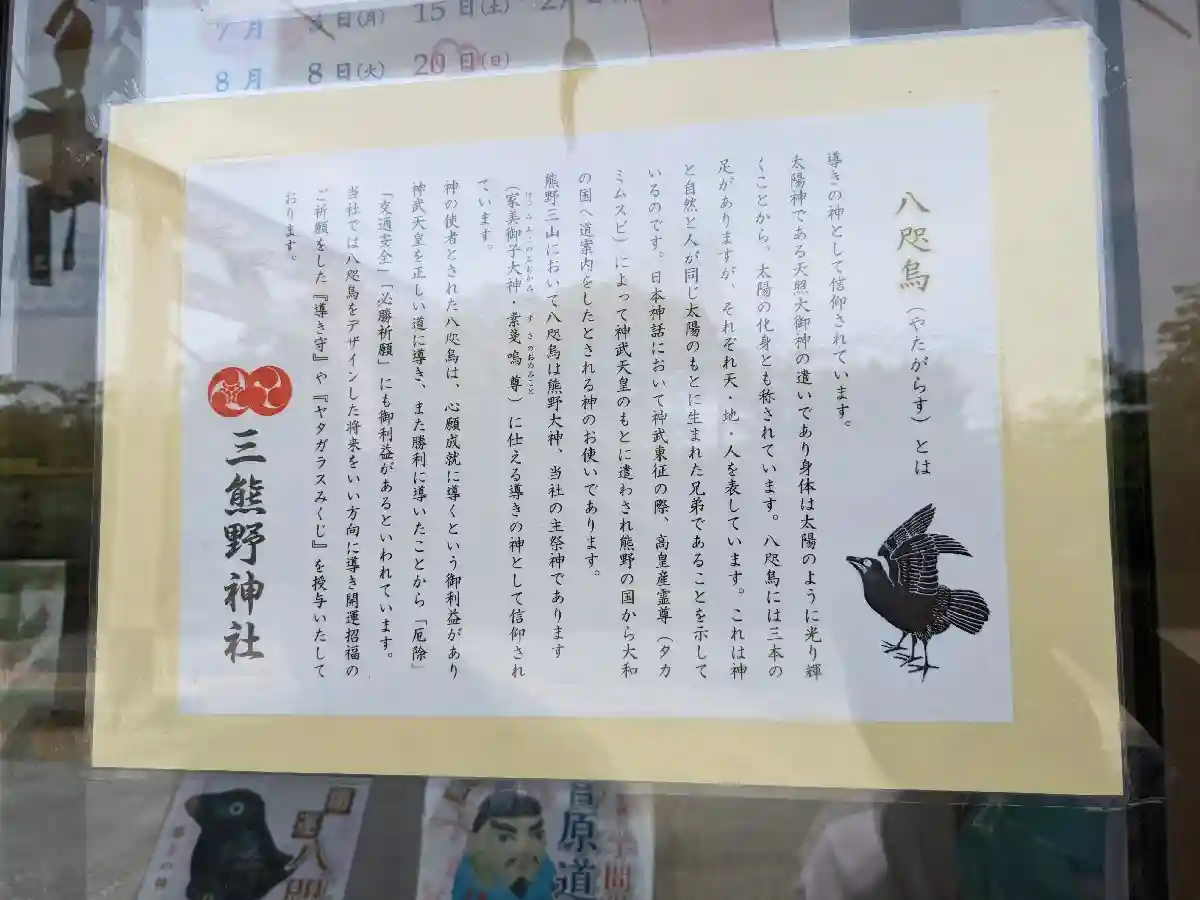 7月 15日(土)
8月 8日(火) 20日(日)
八咫烏（やたがらす）とは
導きの神として信仰されています。
太陽神である天照大御神の遣いであり身体は太陽のように光り輝
くことから、太陽の化身とも称されています。八咫烏には三本の
足がありますが、それぞれ天・地・人を表しています。これは神
と自然と人が同じ太陽のもとに生まれた兄弟であることを示して
いるのです。日本神話において神武東征の際、高皇産霊尊（タカ
ミムスビ）によって神武天皇のもとに遣わされ熊野の国から大和
の国へ道案内をしたとされる神のお使いであります。
熊野三山において八咫烏は熊野大神、当社の主祭神であります
（家美御子大神・素戔嗚尊）に仕える導きの神として信仰され
ています。
神の使者とされた八咫烏は、心願成就に導くという御利益があり
神武天皇を正しい道に導き、また勝利に導いたことから「厄除」
「交通安全」「必勝祈願」にも御利益があるといわれています。
当社では八咫烏をデザインした将来をいい方向に導き開運招福の
ご祈願をした『導き守』や『ヤタガラスみくじ』を授与いたして
おります。
三熊野神社
原道